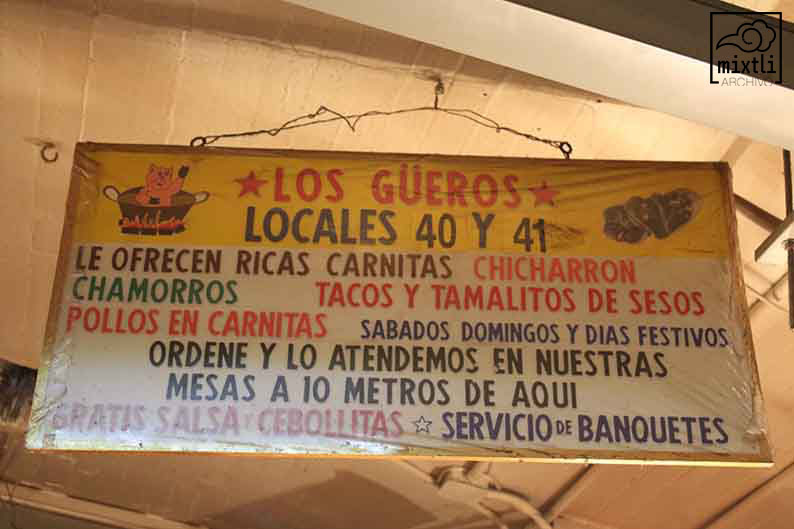 mixtli
ARCHIVO
★LOS GÜEROS★
LOCALES 40 Y 41
LE OFRECEN RICAS CARNITAS CHICHARRON
CHAMORROS TACOS Y TAMALITOS DE SESOS
POLLOS EN CARNITAS SABADOS DOMINGOS Y DIAS FESTIVOS
ORDENE Y LO ATENDEMOS EN NUESTRAS
MESAS A 10 METROS DE AQUI
GRATIS SALSA Y CEBOLLITAS ☆ SERVICIO DE BANQUETES